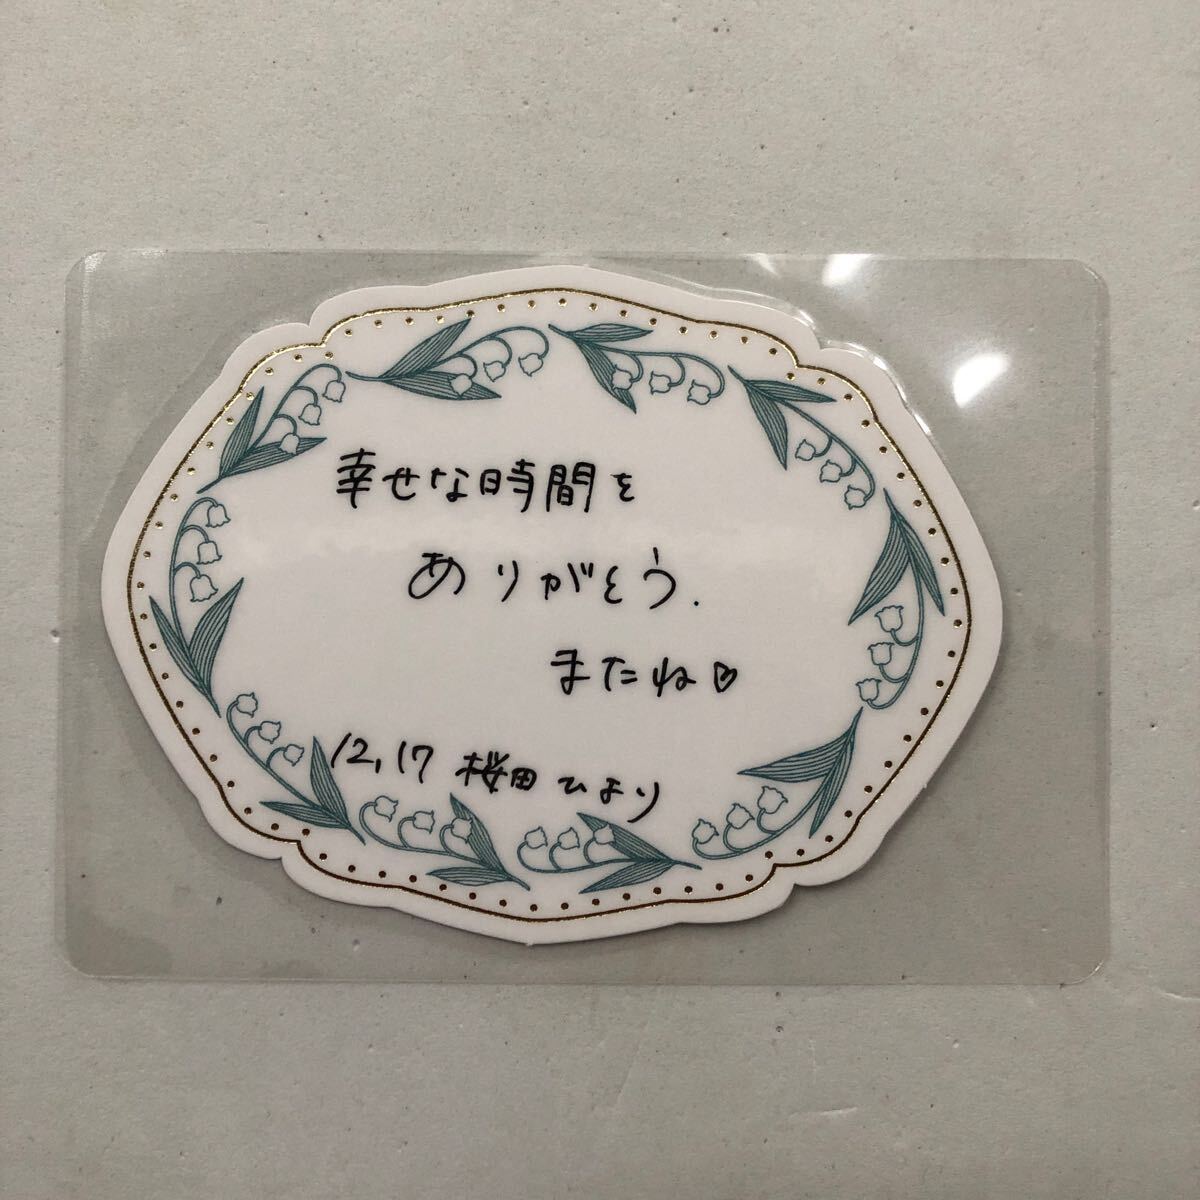 幸せな時間を
ありがとう.
またね♡
12,17 桜田ひより